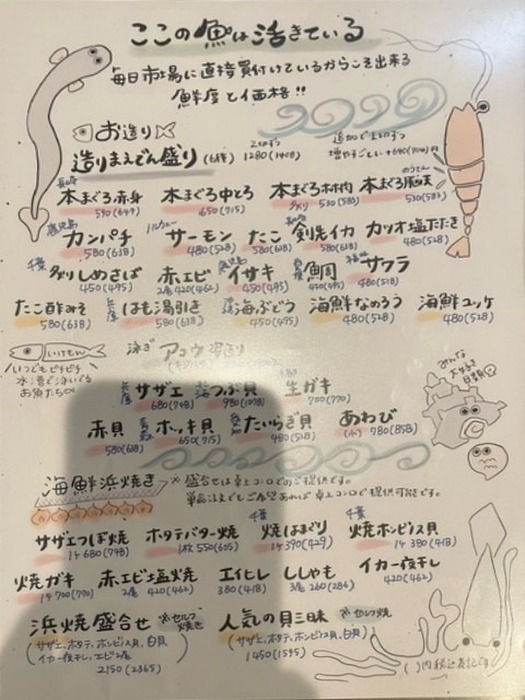 ここの魚は活きている
毎日市場に直接買付けているからこそ出来る
鮮度と価格!!
お造り
造りまえでん盛り (6種) 1280(1408)
長崎
本まぐろ赤身 590(649)
本まぐろ中とろ 650(715)
本まぐろホホ肉 530(583)
本まぐろ脳天 530(583)
鹿児島
カンパチ 580(638)
ノルウェー
サーモン 480(528)
たこ 580(638)
剣先イカ 580(638)
カツオ塩たたき 480(528)
千葉
炙りしめさば 450(495)
赤エビ 2尾 420(462)
鹿児島
イサキ 450(495)
鯛 450(495)
サワラ 480(528)
たこ酢みそ 580(638)
兵庫
はも湯引き 580(638)
海ぶどう 450(495)
海鮮なめろう 480(528)
海鮮ユッケ 480(528)
いけもん
いつでもピチピチ
水槽で泳いでる
お魚たち
泳ぎ アコウ 姿造り
みんな
大好き
貝類
兵庫
サザエ 680(748)
つぶ貝 980(1078)
生ガキ 700(770)
赤貝 580(638)
ホッキ貝 650(715)
愛知
たいらぎ貝 480(528)
あわび (小) 780(858)
海鮮浜焼き ※盛合せは卓上コンロでのご提供です。
単品注文でもご希望あれば卓上コンロで提供可能です。
サザエつぼ焼 1ケ 680(748)
ホタテバター焼 1枚 550(605)
千葉
焼はまぐり 1ケ 390(429)
千葉
焼ホンビノス貝 1ケ 380(418)
焼ガキ 1ケ 700(770)
赤エビ塩焼 2尾 420(462)
エイヒレ 380(418)
ししゃも 3尾 260(286)
イカ一夜干し 420(462)
浜焼盛合せ ※セルフ焼き
(サザエ、ホタテ、ホンビノス貝、白貝
イカ一夜干し、エビ2尾)
2150(2365)
人気の貝三昧 ※セルフ焼
(サザエ、ホタテ、ホンビノス貝、白貝)
1450(1595)
( )内税込表記です